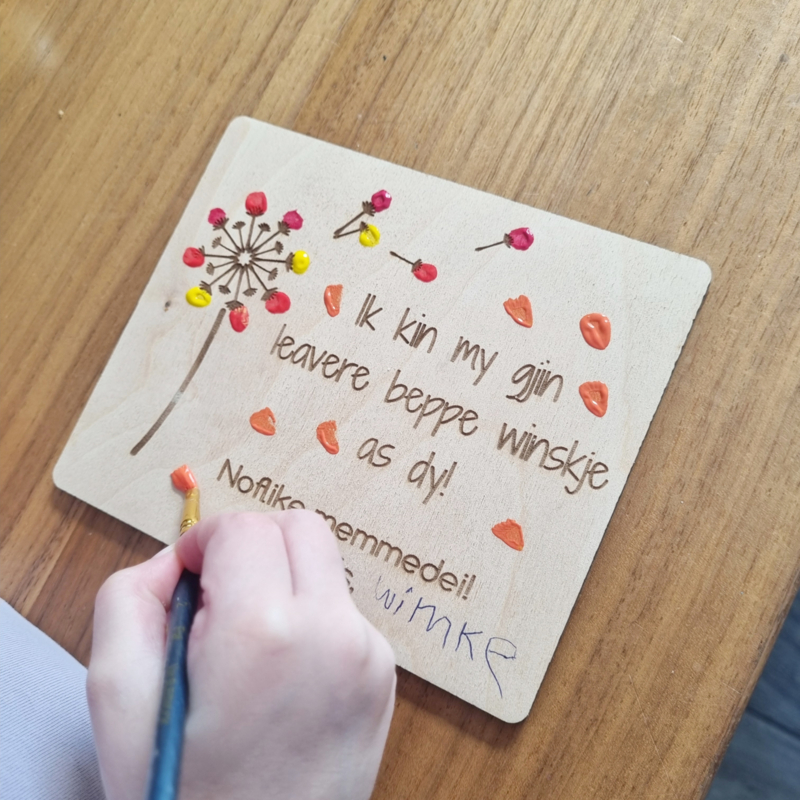 Ik kin my gjin
leavere beppe winskje
as dy!
Noflike memmedei!
wimke